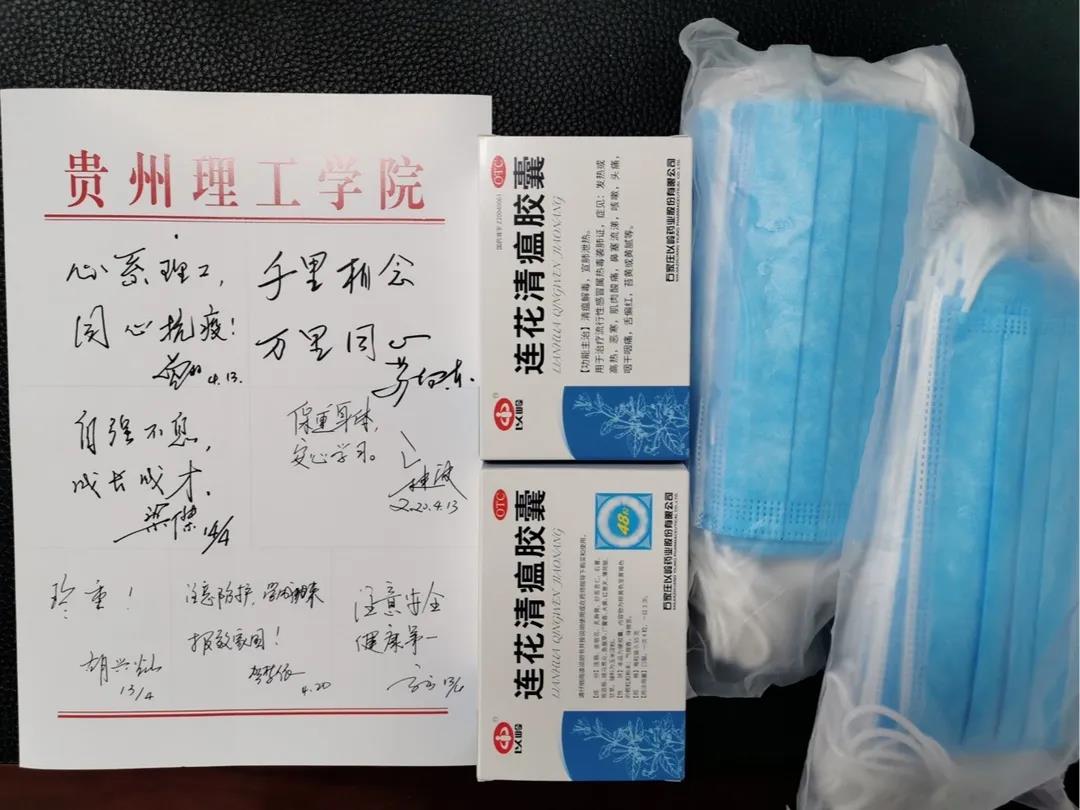 贵州理工学院
心系理工，
同心抗疫！
4.13.
千里相念
万里同心
自强不息，
成长成才．
保重身体，
安心学习。
2020.4.13
珍重！
胡兴
13/4
注意防护，学成归来
报效家国！
4.20
注意安全
健康第一
OTC
国药准字 Z20040063
连花清瘟胶囊
LIANHUA QINGWEN JIAONANG
【功能主治】清瘟解毒，宣肺泄热。
用于治疗流行性感冒属热毒袭肺证，症见：发热或
高热，恶寒，肌肉酸痛，鼻塞流涕，咳嗽，头痛，
咽干咽痛，舌偏红，苔黄或黄腻等。
石家庄以岭药业股份有限公司
SHIJIAZHUANG YILING PHARMACEUTICAL CO.,LTD.
以岭
OTC
连花清瘟胶囊
LIANHUA QINGWEN JIAONANG
48粒
请仔细阅读说明书并按说明使用或在药师指导下购买和使用。
石家庄以岭药业股份有限公司
SHIJIAZHUANG YILING PHARMACEUTICAL CO.,LTD.
以岭